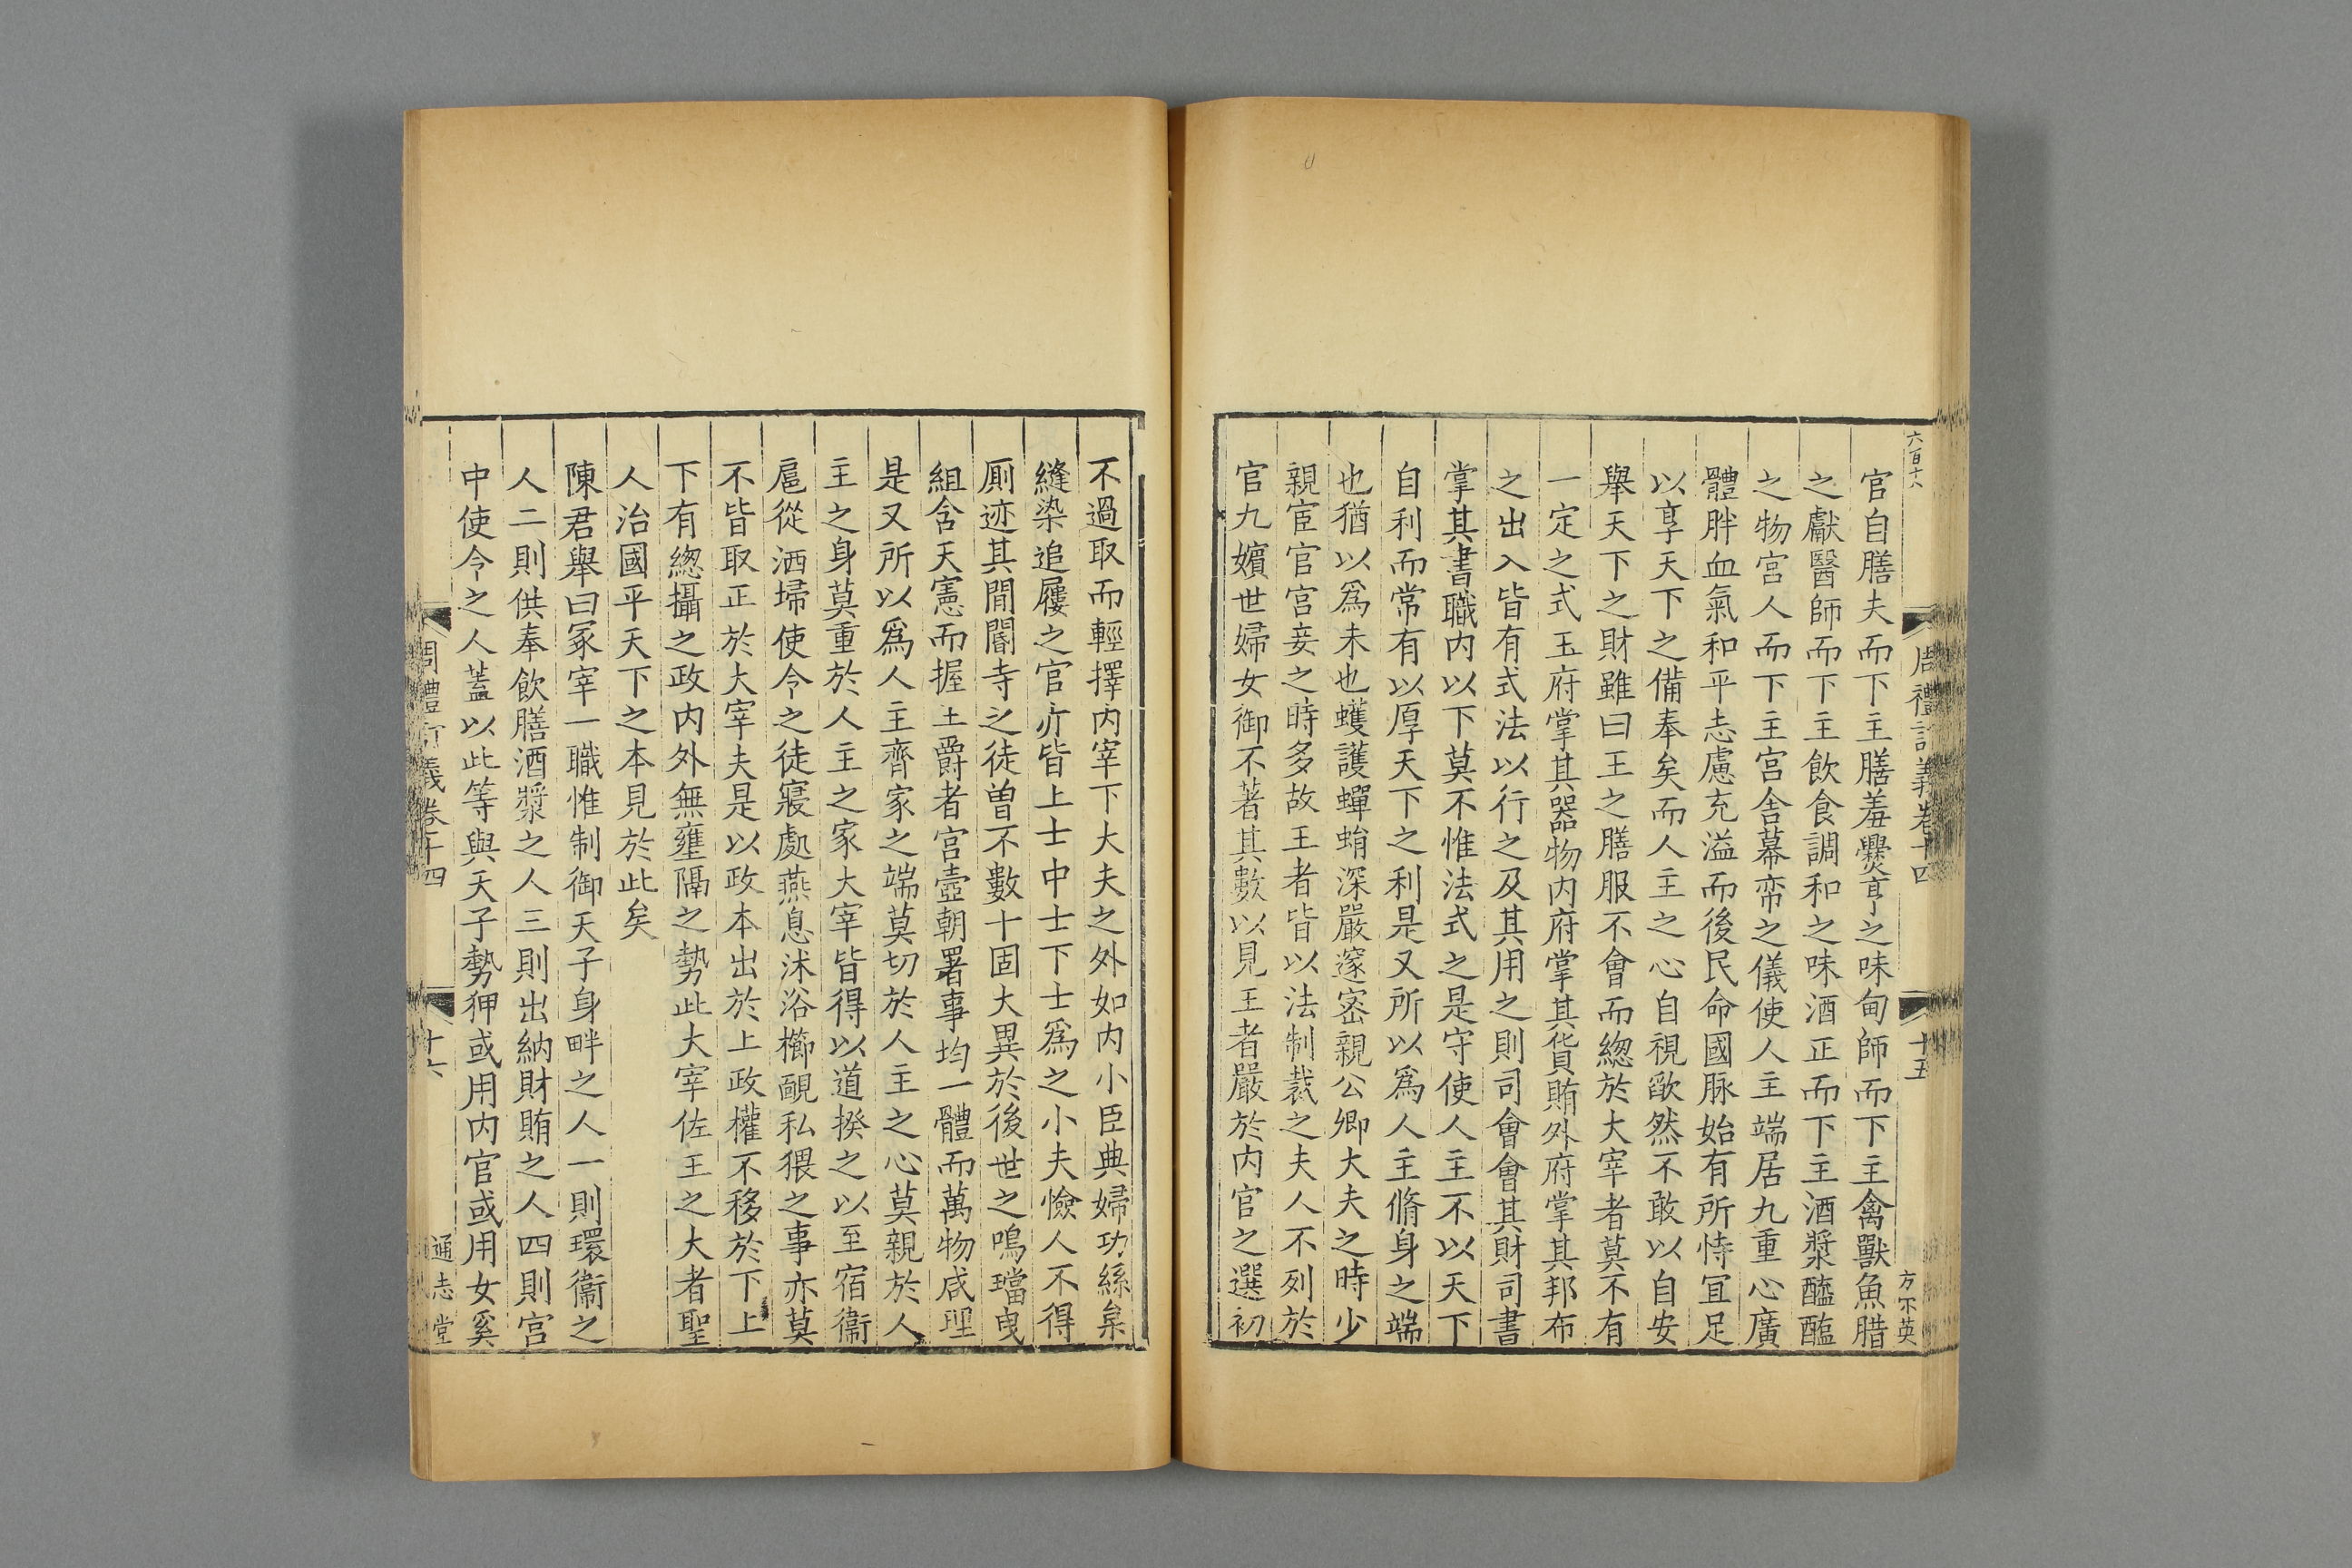 六百十八
周禮訂義卷十四
十五
方不英
官自膳夫而下主膳羞爨亨之味甸師而下主禽獸魚腊
之獻醫師而下主飲食調和之味酒正而下主酒漿醯醢
之物宮人而下主宮舍幕帟之儀使人主端居九重心廣
體胖血氣和平志慮充溢而後民命國脉始有所恃冝足
以享天下之備奉矣而人主之心自視欿然不敢以自安
舉天下之財雖曰王之膳服不會而緫於大宰者莫不有
一定之式玉府掌其器物内府掌其貨賄外府掌其邦布
之出入皆有式法以行之及其用之則司會會其財司書
掌其書職内以下莫不惟法式之是守使人主不以天下
自利而常有以厚天下之利是又所以為人主脩身之端
也猶以爲未也蠖護蟬蛸深嚴邃宻親公卿大夫之時少
親宦官宮妾之時多故王者皆以法制裁之夫人不列於
官九嬪世婦女御不著其數以見王者嚴於内官之選初
不過取而輕擇内宰下大夫之外如内小臣典婦功絲枲
縫染追屨之官亦皆上士中士下士爲之小夫憸人不得
厠迹其間閽寺之徒曾不數十固大異於後世之鳴璫曳
組含天憲而握王爵者宮壼朝署事均一體而萬物咸理
是又所以爲人主齊家之端莫切於人主之心莫親於人
主之身莫重於人主之家大宰皆得以道揆之以至宿衞
扈從洒埽使令之徒寢處燕息沭浴櫛䩄私猥之事亦莫
不皆取正於大宰夫是以政本出於上政權不移於下上
下有緫攝之政内外無壅隔之勢此大宰佐王之大者聖
人治國平天下之本見於此矣
陳君舉曰冢宰一職惟制御天子身畔之人一則環衞之
人二則供奉飲膳酒漿之人三則出納財賄之人四則宮
中使令之人蓋以此等與天子勢狎或用内官或用女奚
周禮訂義卷十四
十六
通志堂